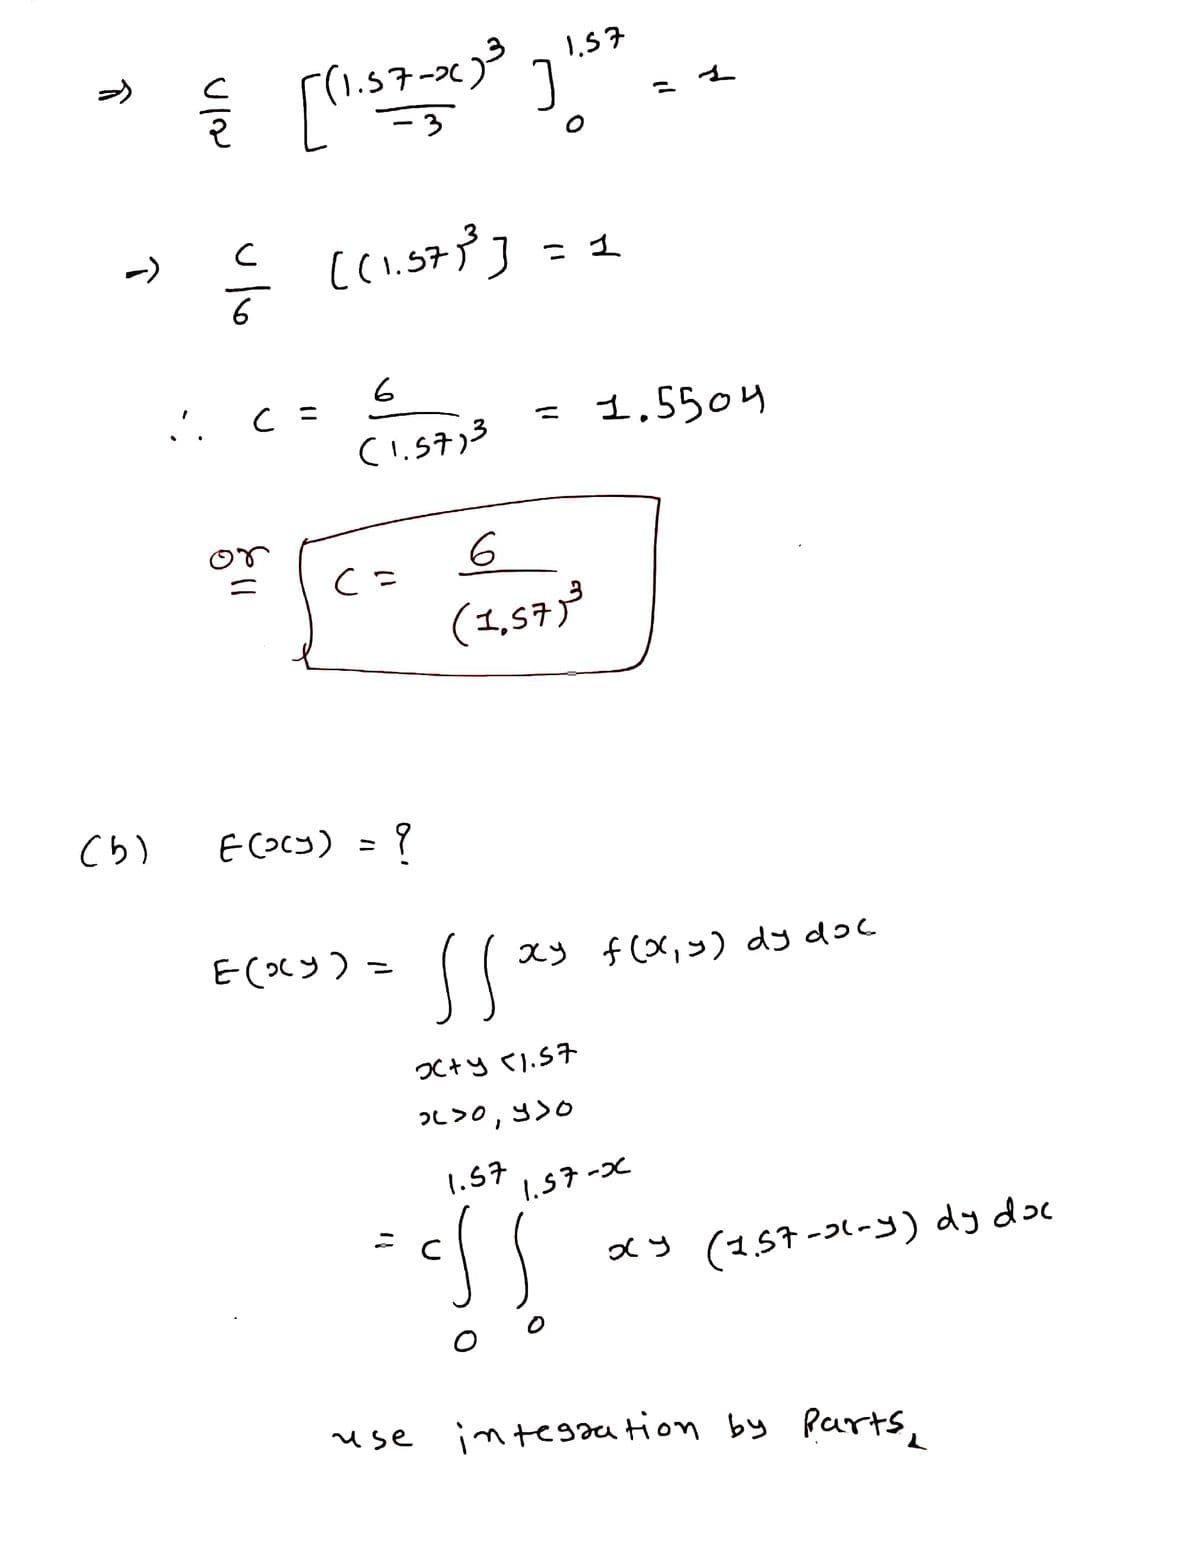 ⇒ c/2 [(1.57-x)³/-3]₀^1.57 = 1
→ c/6 [(1.57)³] = 1
∴ c = 6/(1.57)³ = 1.5504
or c = 6/(1.57)³
(b) E(xy) = ?
E(xy) = ∫∫ xy f(x,y) dy dx
x+y <1.57
x>0, y>0
= c ∫₀^1.57 ∫₀^1.57-x xy (1.57-x-y) dy dx
use integration by Parts,